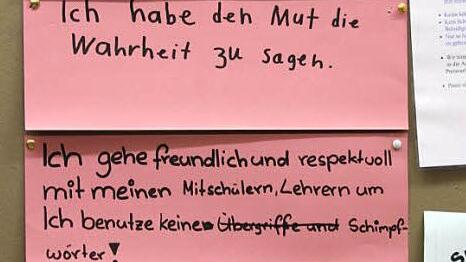 Ich habe den Mut die
Wahrheit zu sagen.
Ich gehe freundlich und respektvoll
mit meinen Mitschülern, Lehrern um
Ich benutze keine Übergriffe und Schimpf-
wörter!